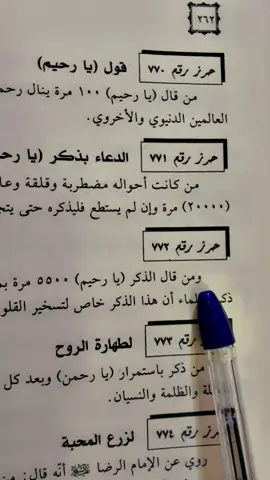 ٣٦٢
حرز رقم ٧٧٠ قول (يا رحيم)
من قال (يا رحيم) ١٠٠ مرة ينال
العالمين الدنيوي والأخروي.
حرز رقم ٧٧١ الدعاء بذكر (يا
من كانت أحواله مضطربة وقلقة
(٢٠٠٠٠) مرة وإن لم يستطع فليذكره حتى
حرز رقم ٧٧٢
ومن قال الذكر (يا رحيم) ٥٥٠٠ مرة
أن هذا الذكر خاص لتسخير
رقم ٧٧٣ لطهارة الروح
من ذكر باستمرار (يا رحمن) وبعد كل
والظلمة والنسيان.
رقم ٧٧٤ لزرع المحبة
روي عن الإمام الرضا ﷺ أنّه قال: من